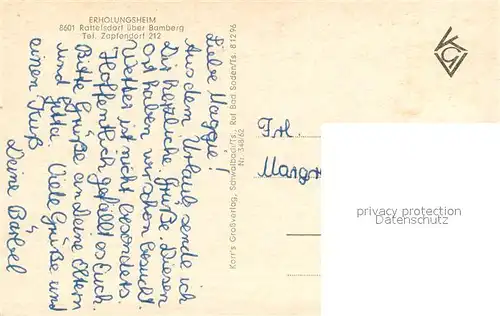 ERHOLUNGSHEIM
8601 Rattelsdorf über Bamberg
Tel. Zapfendorf 212
Liebe Maggie!
Aus dem Urlaub sende ich
Dir herzliche Grüße. Diesen
Ort haben wir schon besucht.
Wetter ist nicht besonders.
Hoffentlich gefällt es Euch.
Bitte Grüße an deine Eltern
und Jutta. Viele Grüße und
einen Kuß
Deine Bärbel
Karr's Großverlag, Schwalbach/Ts., Ref. Bad Soden/Ts. 81296
Nr. 348/62
KGV
Frl.
Margr
privacy protection
Datenschutz